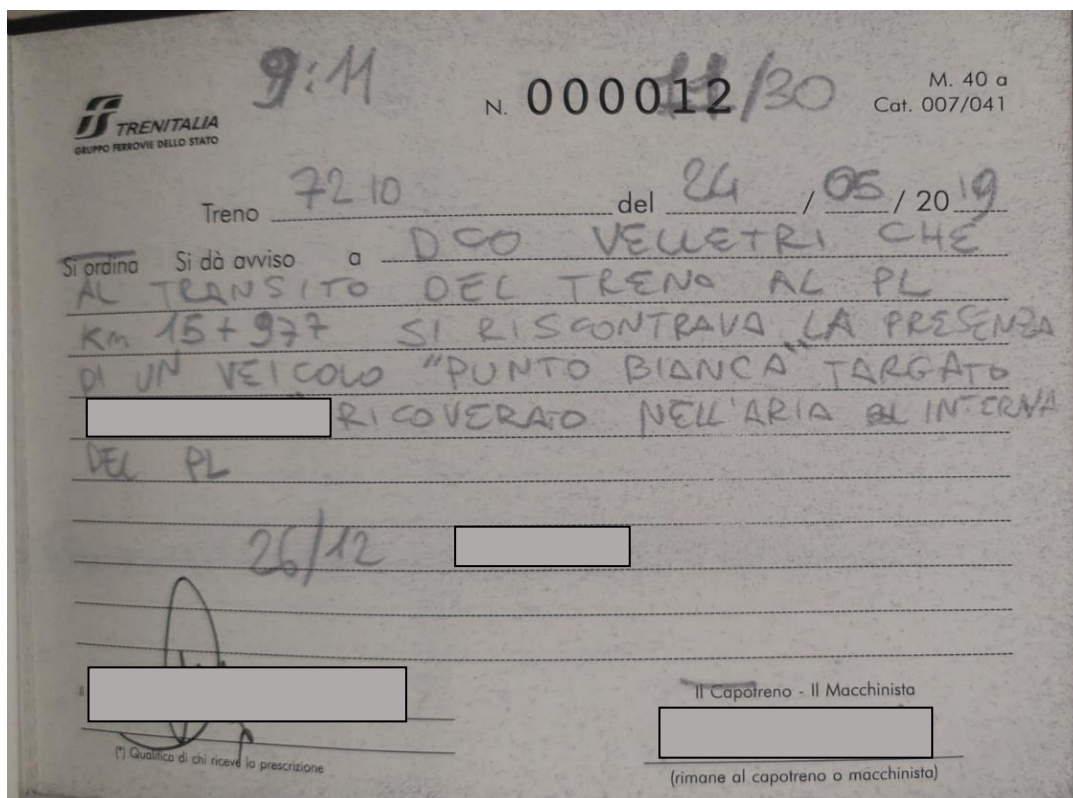 9:11
N. 000012 /30
M. 40 a
Cat. 007/041
TRENITALIA
GRUPPO FERROVIE DELLO STATO
Treno 7210 del 24 / 05 / 2019
Si ordina Si dà avviso a DCO VELLETRI CHE
AL TRANSITO DEL TRENO AL PL
Km 15+977 SI RISCONTRAVA LA PRESENZA
DI UN VEICOLO "PUNTO BIANCA" TARGATO
RICOVERATO NELL'ARIA INTERNA
DEL PL
26/12
Il Capotreno - Il Macchinista
(*) Qualifica di chi riceve la prescrizione
(rimane al capotreno o macchinista)